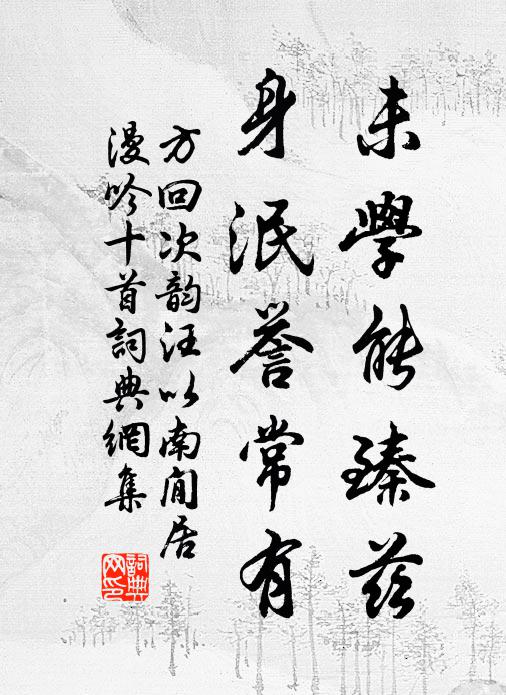 未學能臻茲
身泯譽常有
方回次韵汪以南閒居
漫吟十首詞典網集
詞典网印